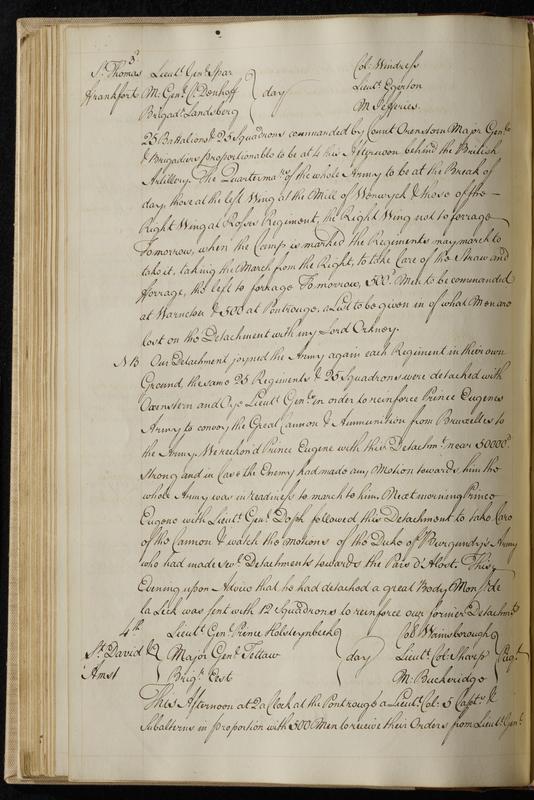 3d
St. Thomas Lieut. Genl. Spar Col: Windress
ffrankfort M: Genl. Ct. Denhoff day Lieut. Egerton
Brigadr. Landsberg M Jefferies.
25 Battalions & 25 Squadrons commanded by Count Oxenstern Major Genls.
& Brigadiers proportionable to be at 4 this Afternoon behind the British
Artillery. The Quartermars. of the whole Army to be at the Break of
day, those at the left Wing at the Mill of Werwyck & those of the
Right Wing at Regiment, the Right Wing not to forrage
Tomorrow, when the Camp is marked the Regiments may march to
take it, taking the March from the Right, to take Care of the Straw and
fforrage, the left to forrage Tomorrow, 500 Men to be commanded
at Warneton & 500 at Pontrouge, a List to be given in of what Men are
lost on the Detachment with my Lord Orkney.
NB Our Detachment joyned the Army again each Regiment in their own
Ground, the same 25 Regiments & 25 Squadrons were detached with
Oxenstern and Lieut. Genls. in order to reinforce Prince Eugenes
Army to convoy the Great Cannon & Ammunition from Bruxelles to
the Army. We reckon'd Prince Eugene with this Detachmt. near 50000
strong and in Case the Enemy had made any Motion towards him the
whole Army was in readiness to march to him. Next morning Prince
Eugene with Lieut. Genl. Doph followed this Detachment to take Care
of the Cannon & watch the motions of the Duke of Burgundy's Army
who had made sevl. Detachments towards the Pais d'Alost. This
Evening upon Advice that he had detached a great Body Monsr. de
la Leck was sent with 12 Squadrons to reinforce our former Detachmt.
4th Lieut. Genl. Prince Holsteynbeck Col Wainsborough
St. David & Major Genl. Tettaw day Lieut. Col: Sharp Pigt
Amst Brigr. Cest M: Buckeridge
This Afternoon at 2 a Clock at the Pontrouge a Lieut. Col: 5 Captns. &
Subalterns in proportion with 500 Men to receive their Orders from Lieut. Genl.